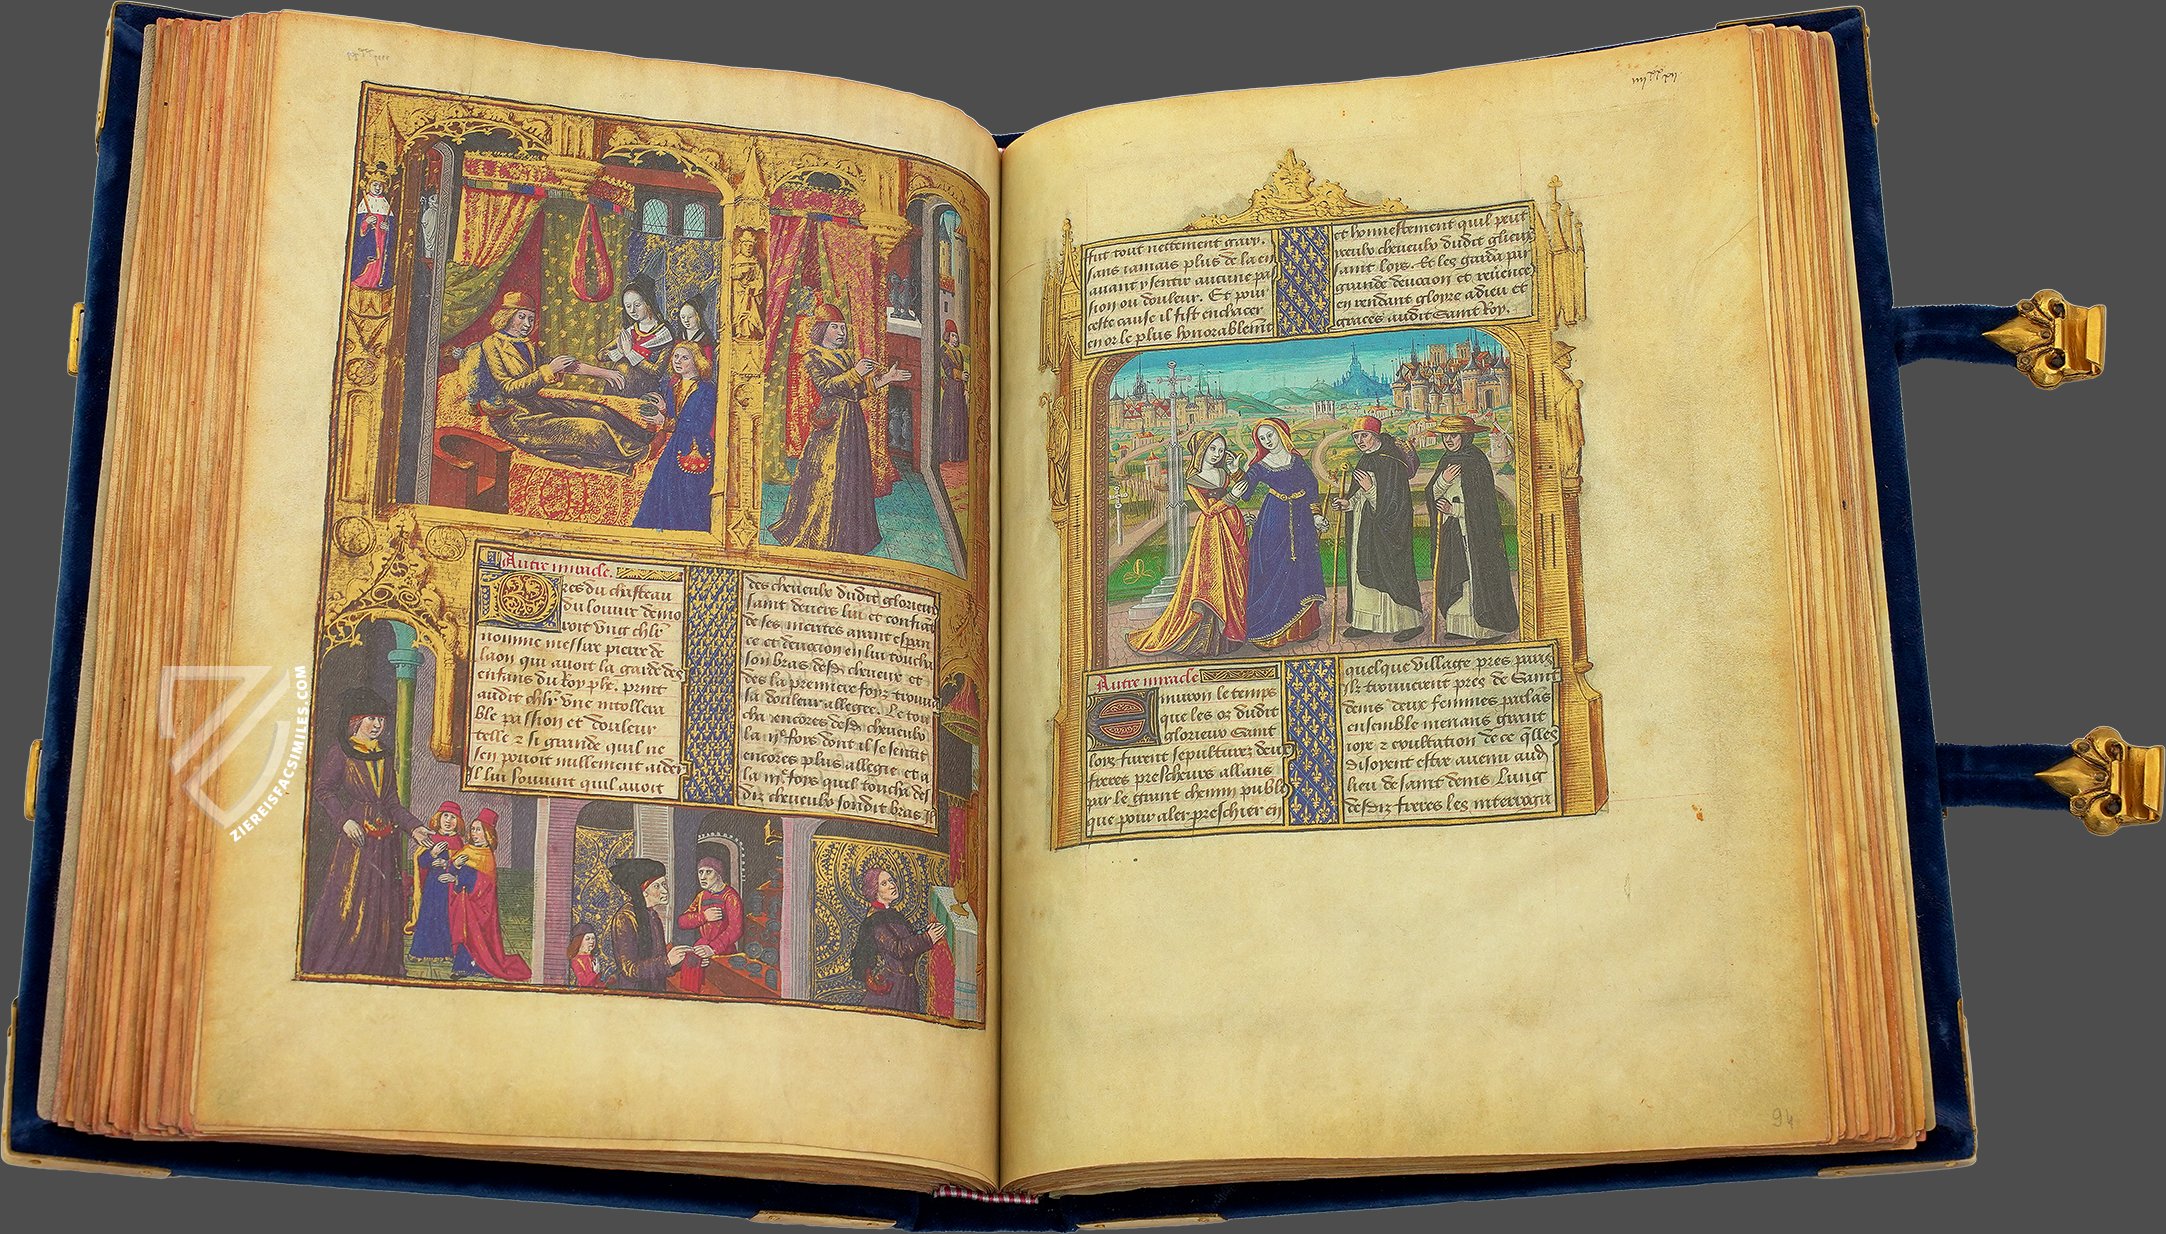 Autre miracle.
res du chasteau
du louvre demo
roit vng chlr
nomme messire pierre de
laon qui auoit la garde des
enfans du Roy phe. print
audit chlr vne intollera
ble passion et douleur
telle & si grande quil ne
sen pouoit nullement aider
Il lui souuint quil auoit
des cheueulx dudit glorieux
saint deuers lui et confiāt
de ses merites ayant esperan
ce et deuocion en lui toucha
son bras desdiz cheueux et
des la premiere foyz trouua
sa douleur allegee. Le tou
cha encores desdiz cheueulx
la iie foys dont il se sentit
encores plus allegie et a
la iiie foys quil toucha des
diz cheueulx sondit bras il
iiiixxxii
fut tout nettement gary.
sans iamais plus de la en
auant y sentir aucune pas
sion ou douleur. Et pour
ceste cause il fist enchacer
en or le plus honorablement
et honnestement quil peut
iceulx cheueulx dudit glieux
saint loys. Et les garda par
grande deuocion et reuerece
en rendant gloyre a dieu et
graces audit Saint Roy.
Autre miracle
Enuiron le temps
que les oz dudit
glorieux Saint
loys furent sepulturez deux
freres prescheurs allans
par le grant chemin publi
que pour aler preschier en
quelque village pres paris
Ilz trouuerent pres de Saint
denis deux femmes parlās
ensemble menans grant
ioye & exultation de ce qlles
disoyent estre auenu aud
lieu de saint denis Lung
desdiz freres les interroga
94
ZIEREISFACSIMILES.COM